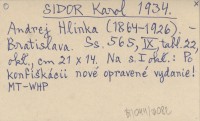 SIDOR Karol 1934.
Andrej Hlinka (1864-1926). -
Bratislava. Ss. 565, IX, tabl. 22,
okl., cm 21 x 14. Na s. I okl.: Po
konfiškácii nové opravené vydanie!
MT-WHP